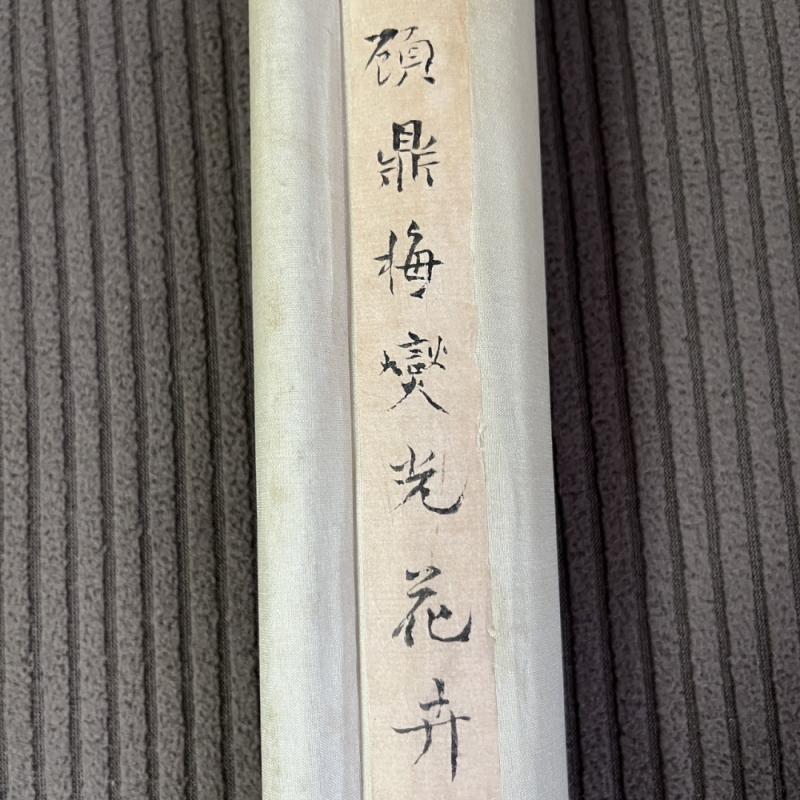 頋鼎梅燮光花卉